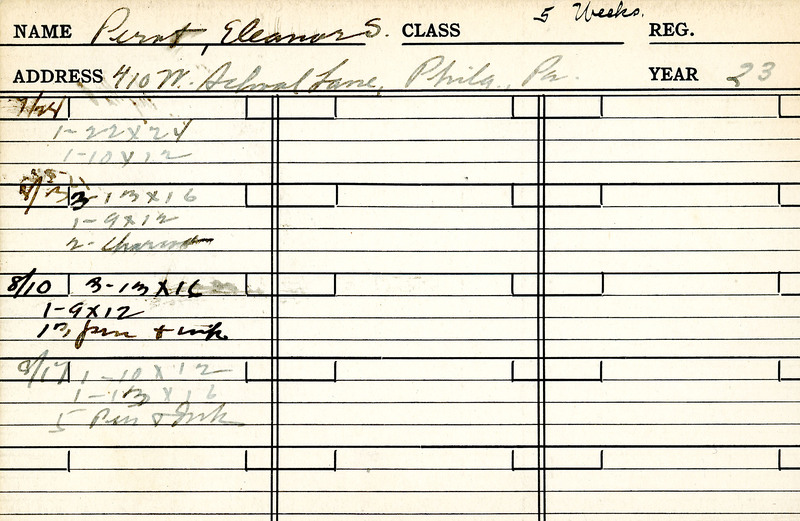 NAME Perot, Eleanor S. CLASS 5 Weeks. REG.
ADDRESS 410 W. School Lane, Phila., Pa. YEAR 23
7/24
1-22x24
1-10x12
8/3 3-13x16
1-9x12
2-
8/10 3-13x16
1-9x12
pen + ink
8/17 1-10x12
1-13x16
5 Pen & Ink